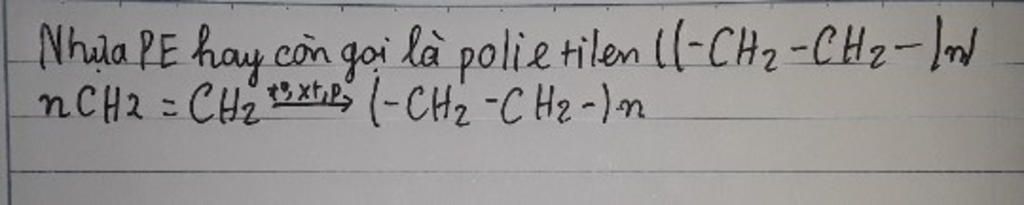 Nhựa PE hay còn gọi là polietilen ((-CH₂-CH₂-)n)
nCH2 = CH₂ t°, xt, p → (-CH₂-CH₂-)n